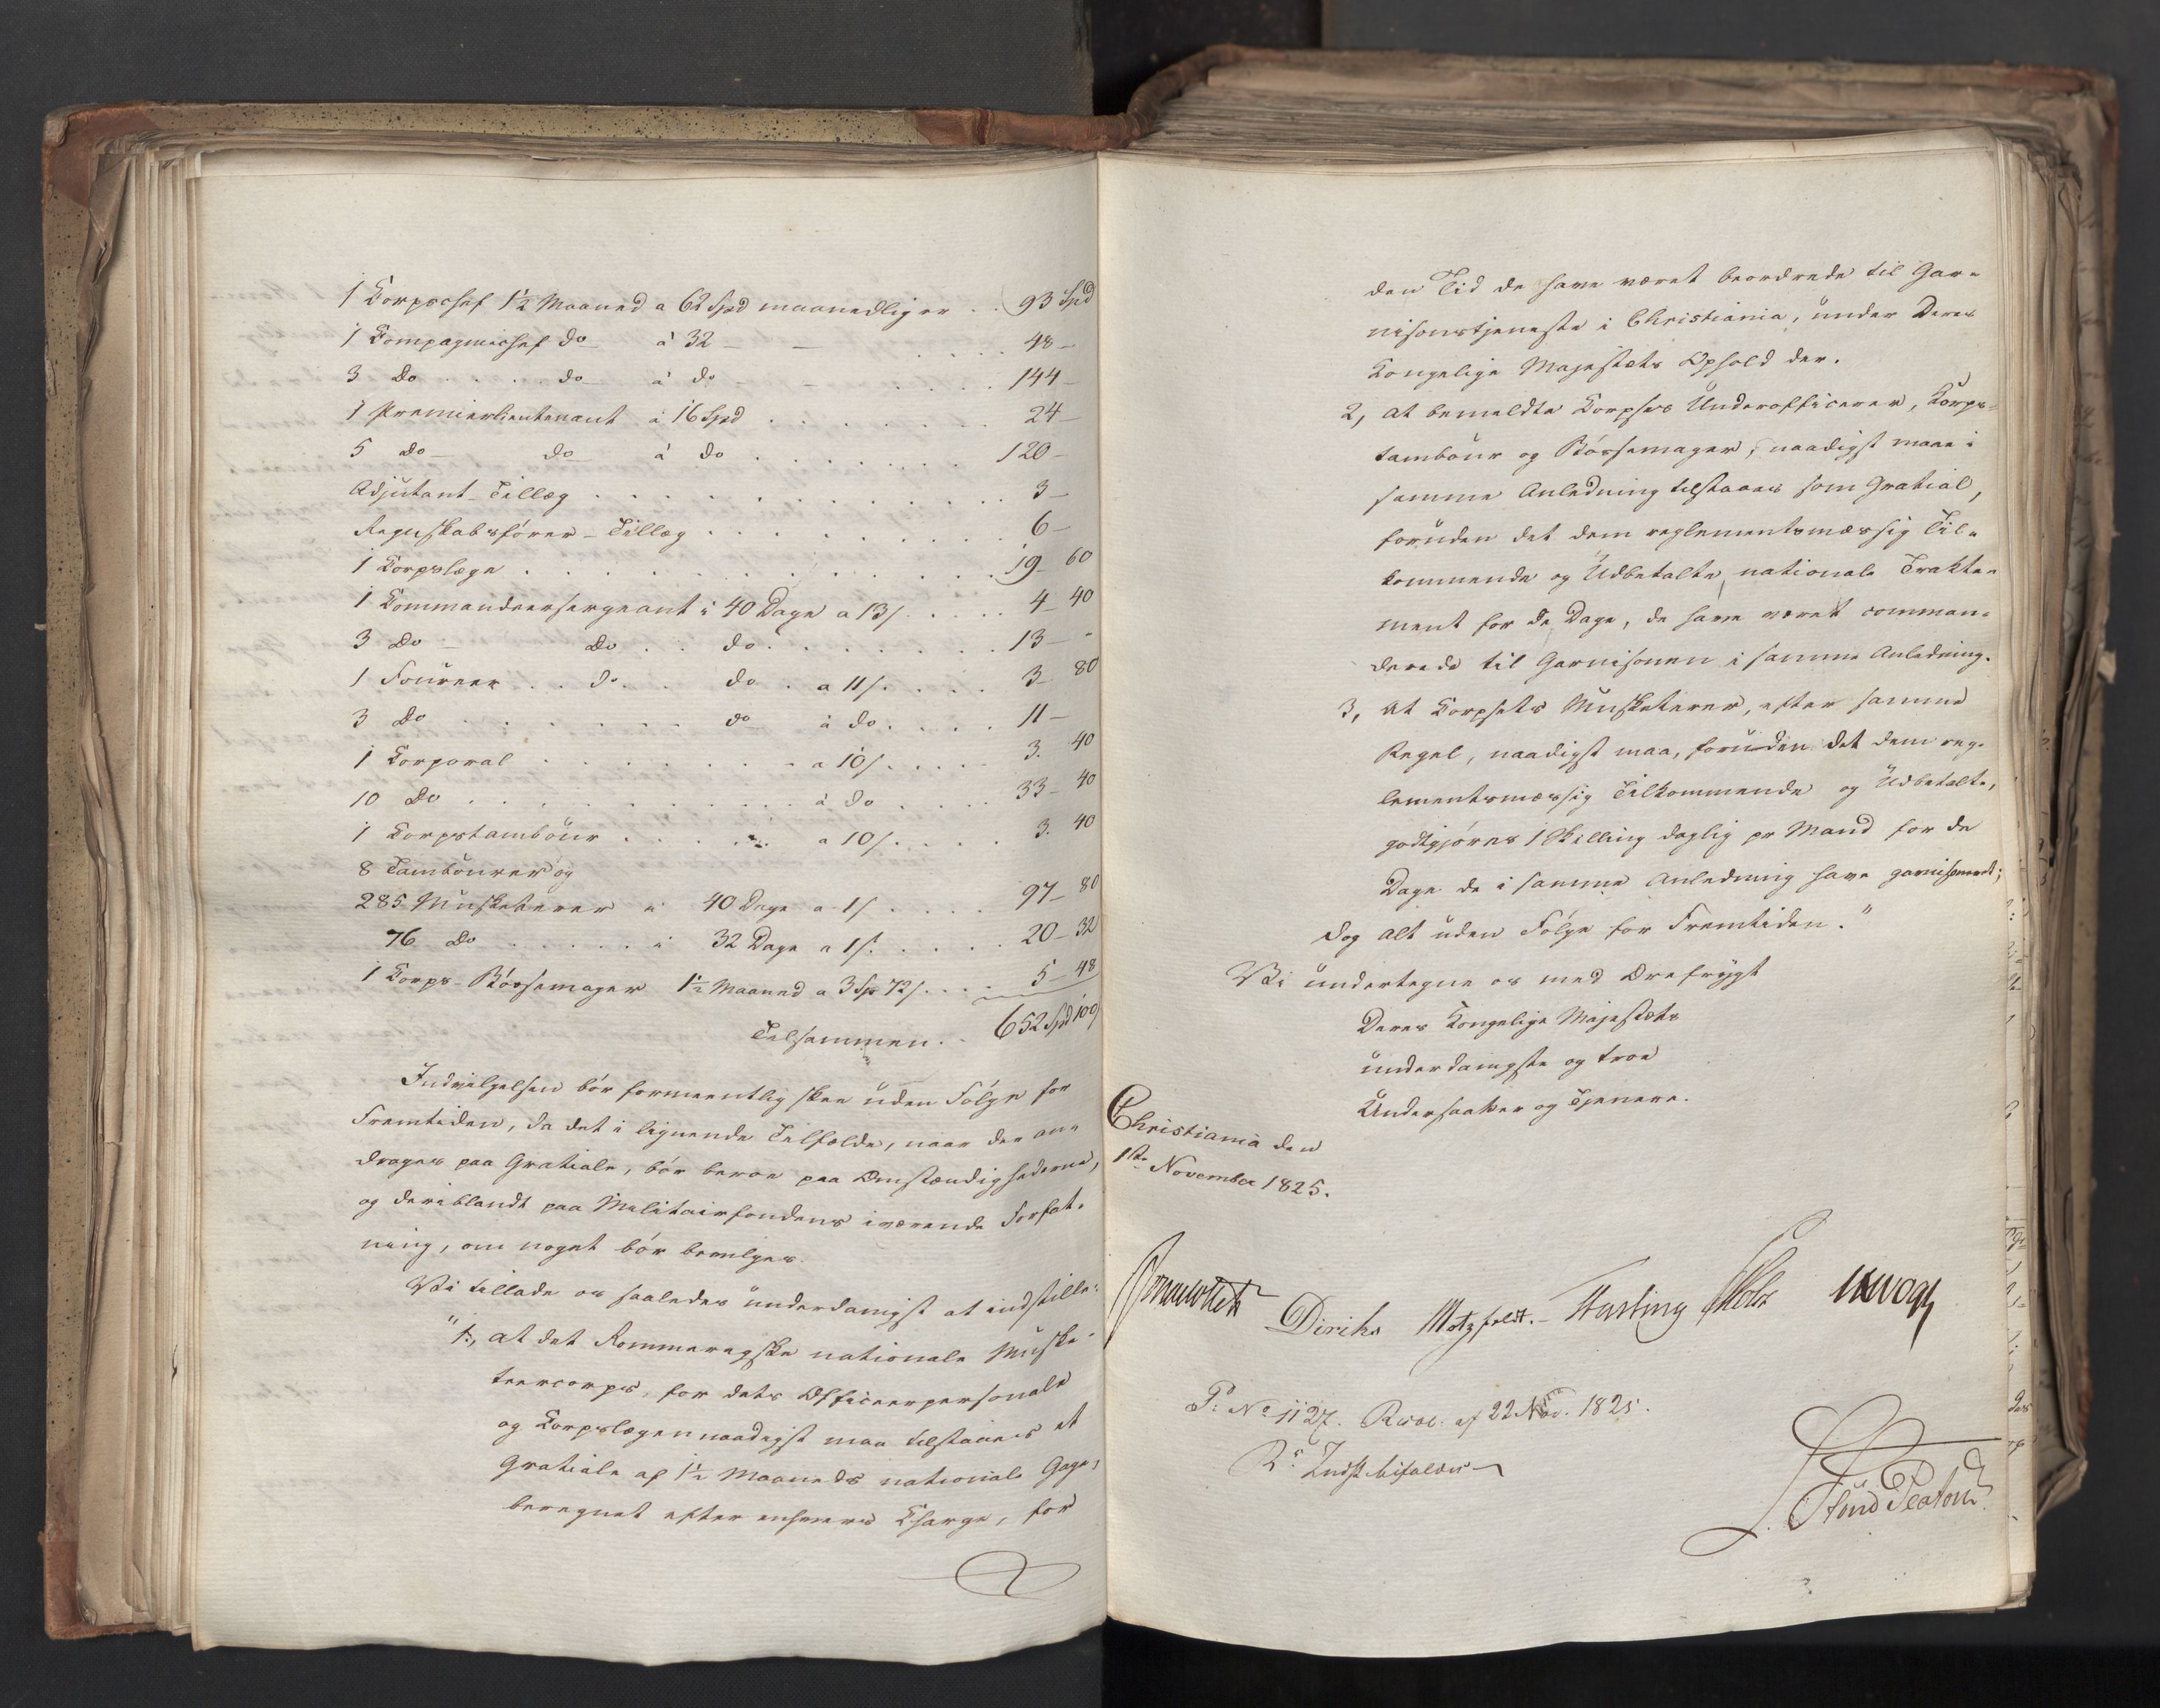 1 Korpschef 1½ Maaned a 62 Spd maanedlig er . . 93 Spd
1 Kompagniechef do à 32 — — . . . . 48 —
3 do . . . . do à do — — . . . . 144 —
1 Premierlieutenant à 16 Spd . . . . . . . 24 —
5 do — do à do . . . . . . . 120 —
Adjutant-Tillæg . . . . . . . . . . . 3 —
Regnskabsfører-Tillæg . . . . . . . . . 6 —
1 Korpslæge . . . . . . . . . . . . . 19 — 60
1 Kommandeersergeant i 40 Dage a 13/ . . . . 4 — 40
3 do — do . . do . . . . . . . 13 — "
1 Foureer . . do . . do . a 11/ . . . . 3 — 80
3 do . . . . . . . do à do . . . . 11 —
1 Korporal . . . . . . . . a 10/ . . . . 3. 40
10 do . . . . . . . . . . à do . . . . . 33 — 40
1 Korpstambour . . . . . . a 10/ . . . . 3. 40
8 Tambourer og
285 Musketerer i 40 Dage a 1/ . . . . 97 — 80
76 do . . . . . i 32 Dage a 1/ . . . . . 20 — 32
1 Korps-Bøssemager 1½ Maaned a 3 Sp 72/ . . . . 5 — 48
Tilsammen . . 652 Spd 100/
Indvilgelsen bør formeentlig skee uden Følge for
Fremtiden, da det i lignende Tilfælde, naar der an-
drages paa Gratiale, bør beroe paa Omstændighederne,
og deriblandt paa Militairfondens iværende Forfat-
ning, om noget bør bevilges.
Vi tillade os saaledes underdanigst at indstille:
"1., at det Rommeregske nationale Muske-
teercorps, for dets Officeerpersonale
og Korpslægen naadigst maa tilstaaes et
Gratiale af 1½ Maaneds nationale Gage,
beregnet efter enhvers Charge, for
den Tid de have været beordrede til Gar-
nisonstjeneste i Christiania, under Deres
Kongelige Majestæts Ophold der.
2, at bemeldte Korpses Underofficerer, Korps-
tambour og Bøssemager, naadigst maae i
samme Anledning tilstaaes som Gratial,
foruden det dem reglementsmæssig Til-
kommende og Udbetalte, nationale Trakte-
ment for de Dage, de have været comman-
derede til Garnisonen i samme Anledning.
3, at Korpsets Musketerer, efter samme
Regel, naadigst maa, foruden det dem reg-
lementsmæssig Tilkommende og Udbetalte,
godtgjøres 1 Skilling daglig pr Mand for de
Dage de i samme Anledning have garnisoneret;
dog alt uden Følge for Fremtiden."
Vi undertegne os med Ærefrygt
Deres Kongelige Majestæts
underdanigste og troe
Undersaatter og Tjenere.
Christiania den
1ste November 1825.
Diriks Motzfeldt. Fasting
P: No 1127. Resol: af 22 Nov. 1825.
Rs Indst. bifaldes